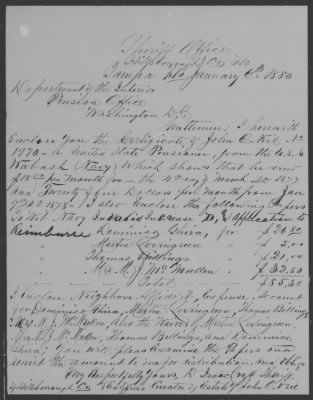 Sheriff Office
of Hillsborough Co Fla
Tampa Fla January 6th 1880
Department of the Interior
Pension Office
Washington D.C.
Gentlemen; I herewith
Enclose you the Certificate of John C. No
1770 a United State Pensioner, from the U.S.S.
Wabash Navy, which shows that he drew
$18 00 per month from the of March 1877
and Twenty four Dollars per month from Jan
1878. I also enclose the following Papers
To Wit Navy Increase application to
Reimburse Dominico Ghira, for $
Martin Lovengreen " $ 5.00
Thomas Billings " $ 21.00
M. J. McMullen " $ 32.50
Total $
I Enclose Neighbors Affidavit, Expense, account
for Dominico Ghira, Martin Lovengreen, Thomas Billings
M. J. McMullen, Also the of Martin Lovengreen
M. J. McMullen, Thomas Billings, and Dominico
Ghira; you will please examine the Papers and
remit the amount to me for distribution and oblige
Very Respectfully Yours, D. Isaac Craft Sheriff,
of Hillsborough Co Ex Officio Curator of Estate of John C.